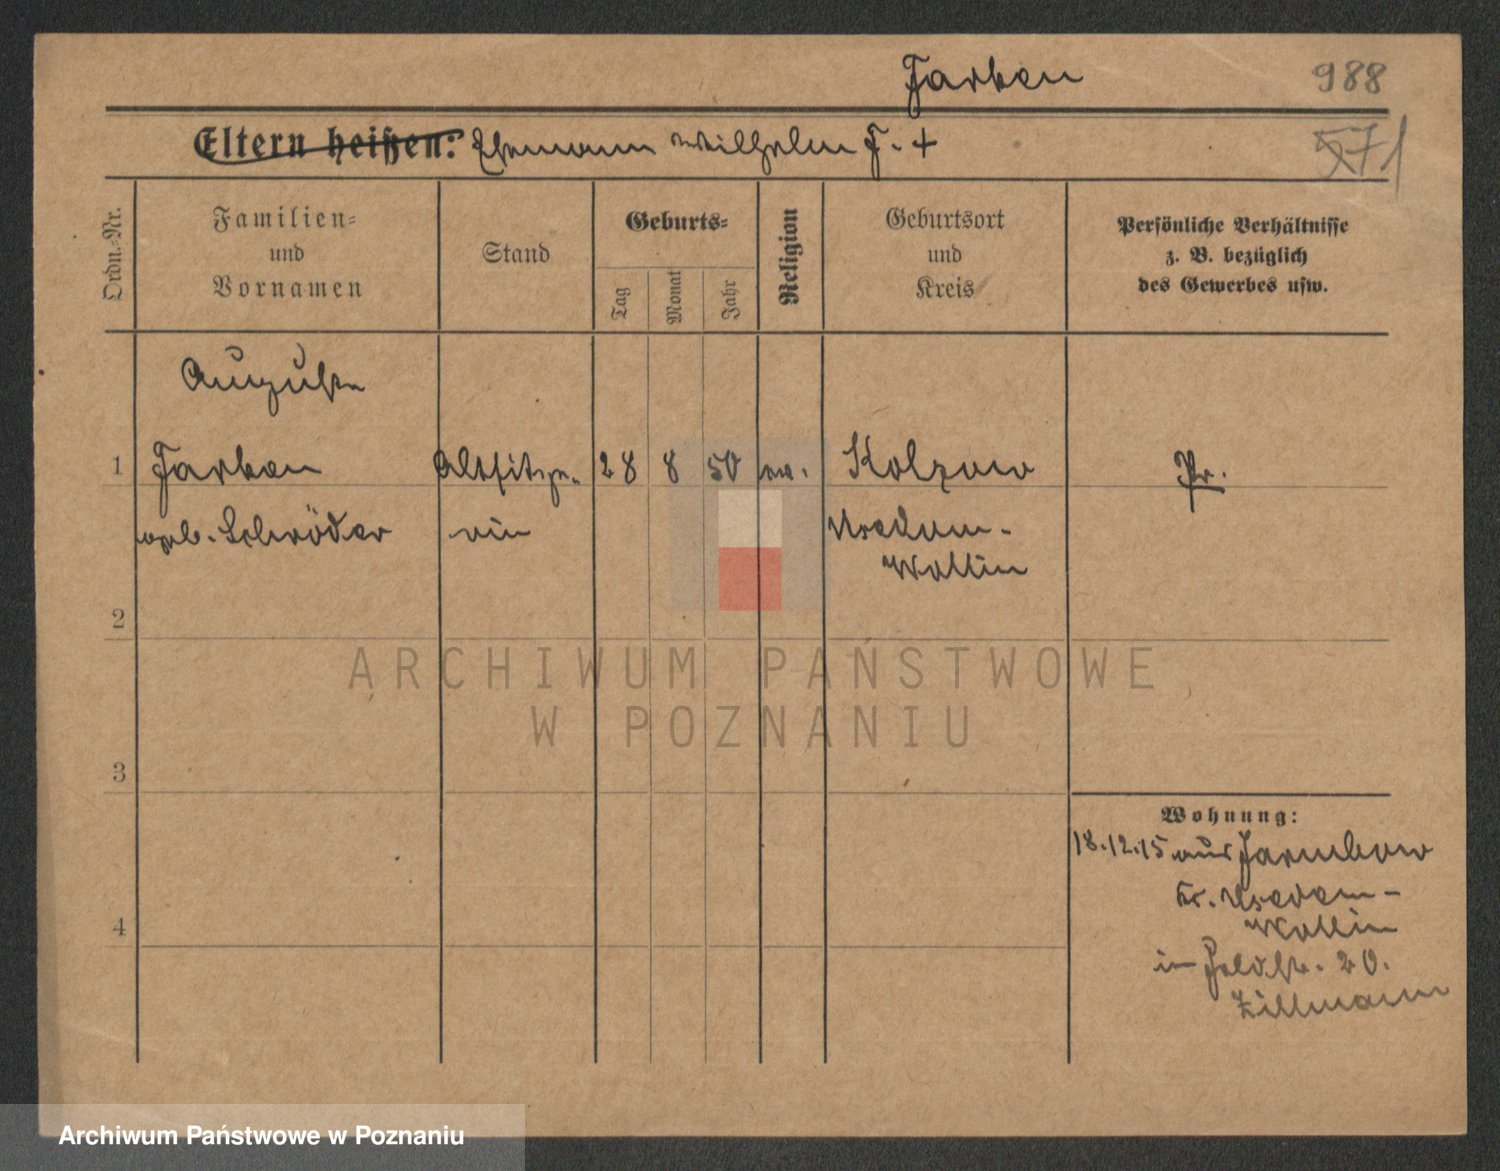 Farben
988
571
Eltern heißen: Ehemann Wilhelm F. +
Ordn.-Nr.
Familien-
und
Vornamen
Stand
Geburts-
Tag
Monat
Jahr
Religion
Geburtsort
und
Kreis
Persönliche Verhältnisse
z. B. bezüglich
des Gewerbes usw.
Auguste
1 Farben Altsitze- 28 8 50 ev. Kolzow Pr.
geb. Schröder rin Usedom-
Wollin
2
3
4
Wohnung:
18.12.15 aus Jarmbow
Kr. Usedom-
Wollin
in Feldstr. 20.
Zillmann
ARCHIWUM PAŃSTWOWE
W POZNANIU
Archiwum Państwowe w Poznaniu